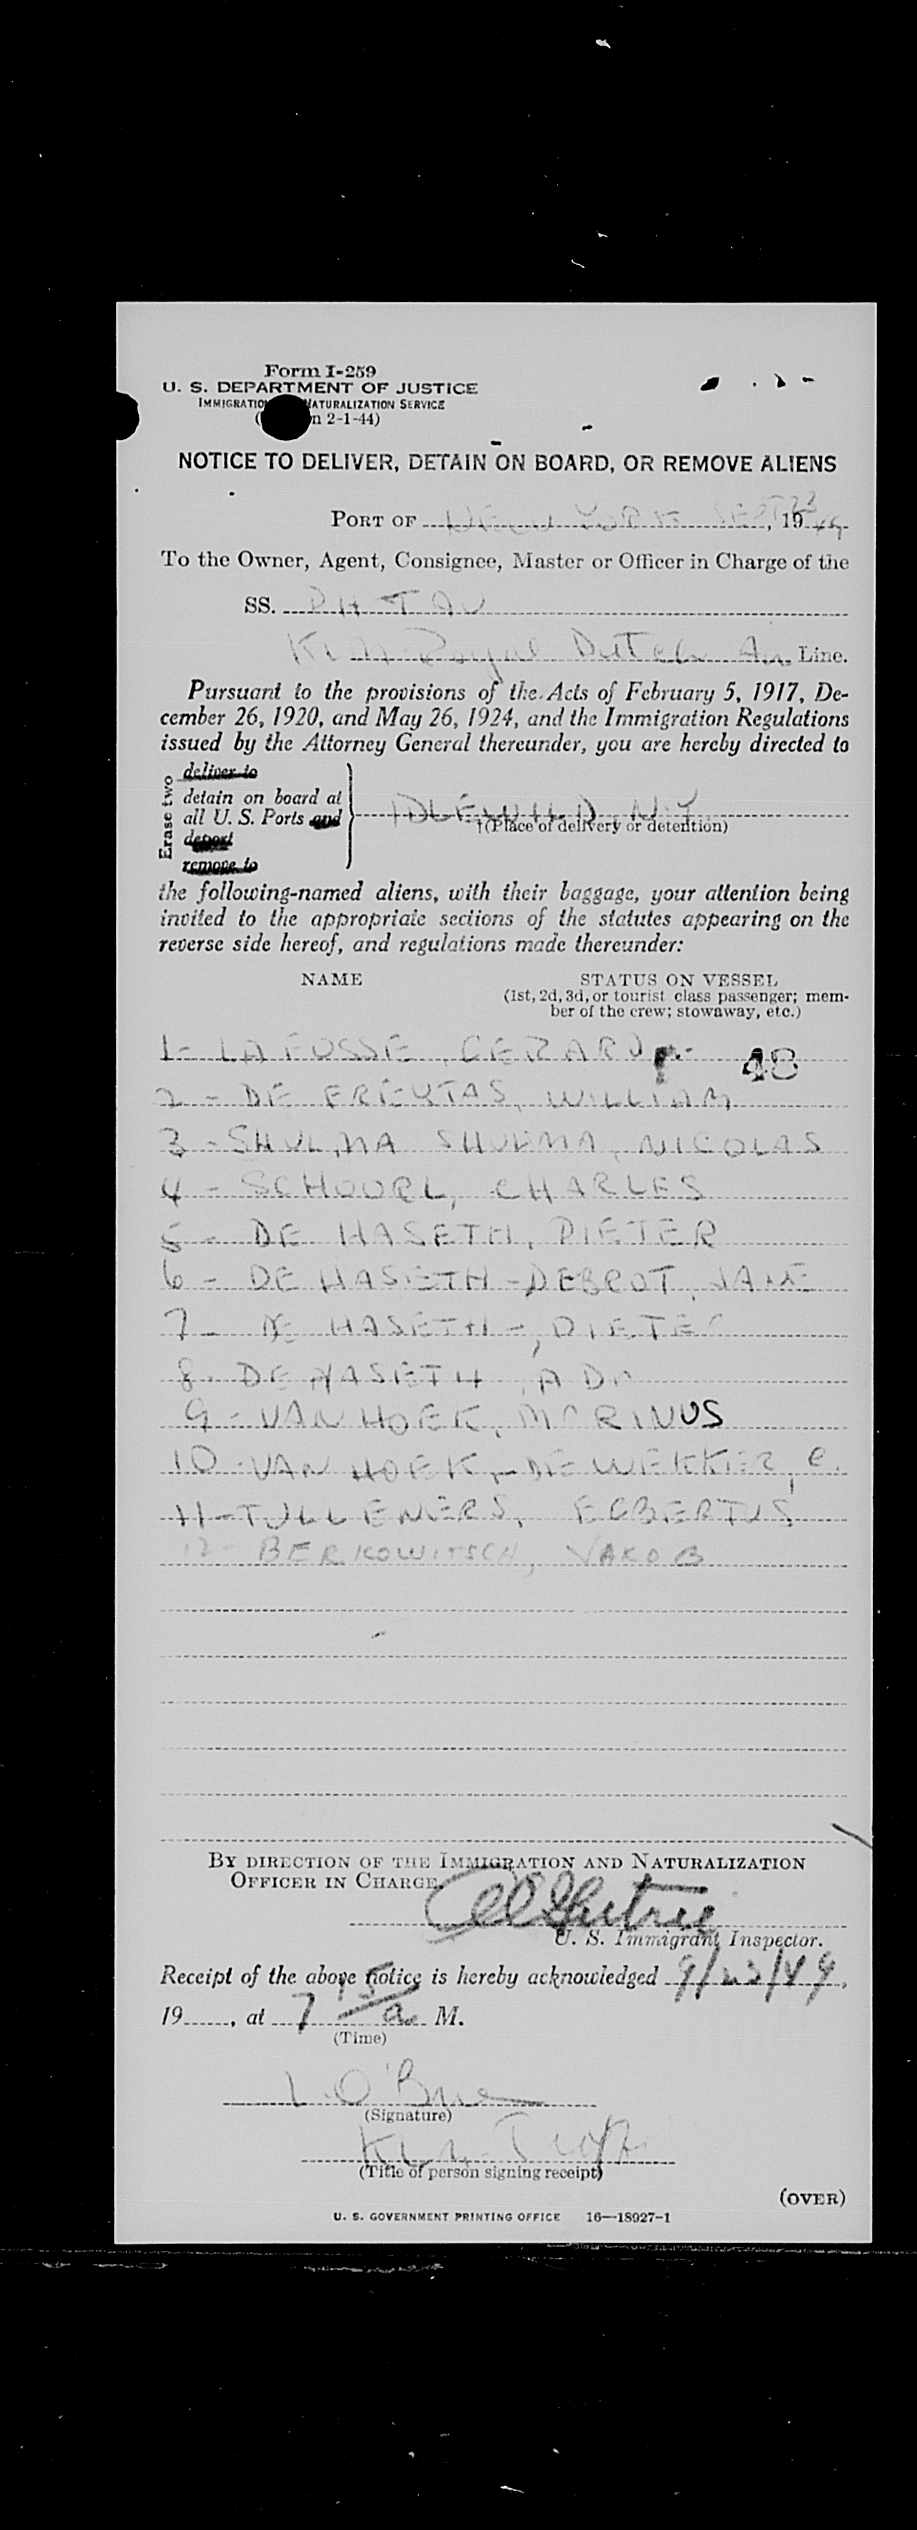 Form I-259
U. S. DEPARTMENT OF JUSTICE
IMMIGRATION NATURALIZATION SERVICE
2-1-44)
NOTICE TO DELIVER, DETAIN ON BOARD, OR REMOVE ALIENS
PORT OF NEW YORK SEPT 23, 1949
To the Owner, Agent, Consignee, Master or Officer in Charge of the
SS. PH TAU
KLM Royal Dutch Air Line.
Pursuant to the provisions of the Acts of February 5, 1917, De-
cember 26, 1920, and May 26, 1924, and the Immigration Regulations
issued by the Attorney General thereunder, you are hereby directed to
Erase two
deliver to
detain on board at
all U. S. Ports and
deport
remove to
IDLEWILD N.Y
†(Place of delivery or detention)
the following-named aliens, with their baggage, your attention being
invited to the appropriate sections of the statutes appearing on the
reverse side hereof, and regulations made thereunder:
NAME STATUS ON VESSEL
(1st, 2d, 3d, or tourist class passenger; mem-
ber of the crew; stowaway, etc.)
1- LA FOSSE, GERARD 48
2 - DE FREYTAS, WILLIAM
3 - SHULMA SHULMA, NICOLAS
4 - SCHOORL, CHARLES
5 - DE HASETH, PIETER
6 - DE HASETH-DEBROT, JANE
7 - DE HASETH-, DIETER
8. DE HASETH, ADA
9 - VAN HOEK, MARINUS
10 - VAN HOEK,-DE WEKKER, C.
11 - TULLENERS, EGBERTUS
12 - BERKOWITSCH, YAKOB
BY DIRECTION OF THE IMMIGRATION AND NATURALIZATION
OFFICER IN CHARGE.
U. S. Immigrant Inspector.
Receipt of the above notice is hereby acknowledged 9/23/49,
19......, at 7 45 a M.
(Time)
L. O'Brie
(Signature)
(Title of person signing receipt)
(OVER)
U. S. GOVERNMENT PRINTING OFFICE 16—18927-1